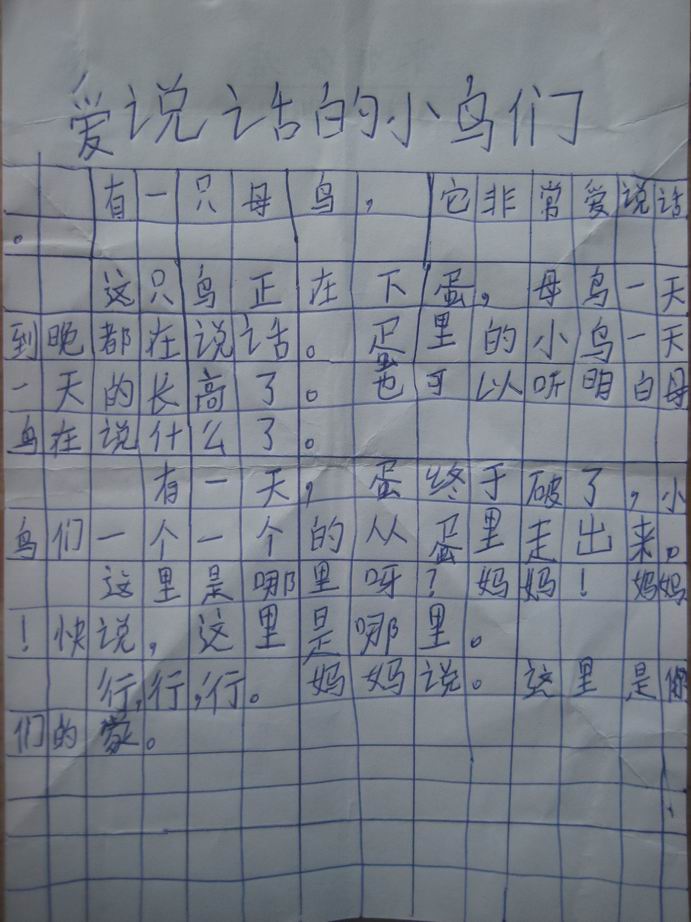 爱说话的小鸟们
有一只母鸟，它非常爱说话
。
这只鸟正在下蛋，母鸟一天
到晚都在说话。蛋里的小鸟一天
一天的长高了。也可以听明白母
鸟在说什么了。
有一天，蛋终于破了，小
鸟们一个一个的从蛋里走出来。
这里是哪里呀？妈妈！妈妈
！快说，这里是哪里。
行，行，行。妈妈说。这里是你
们的家。